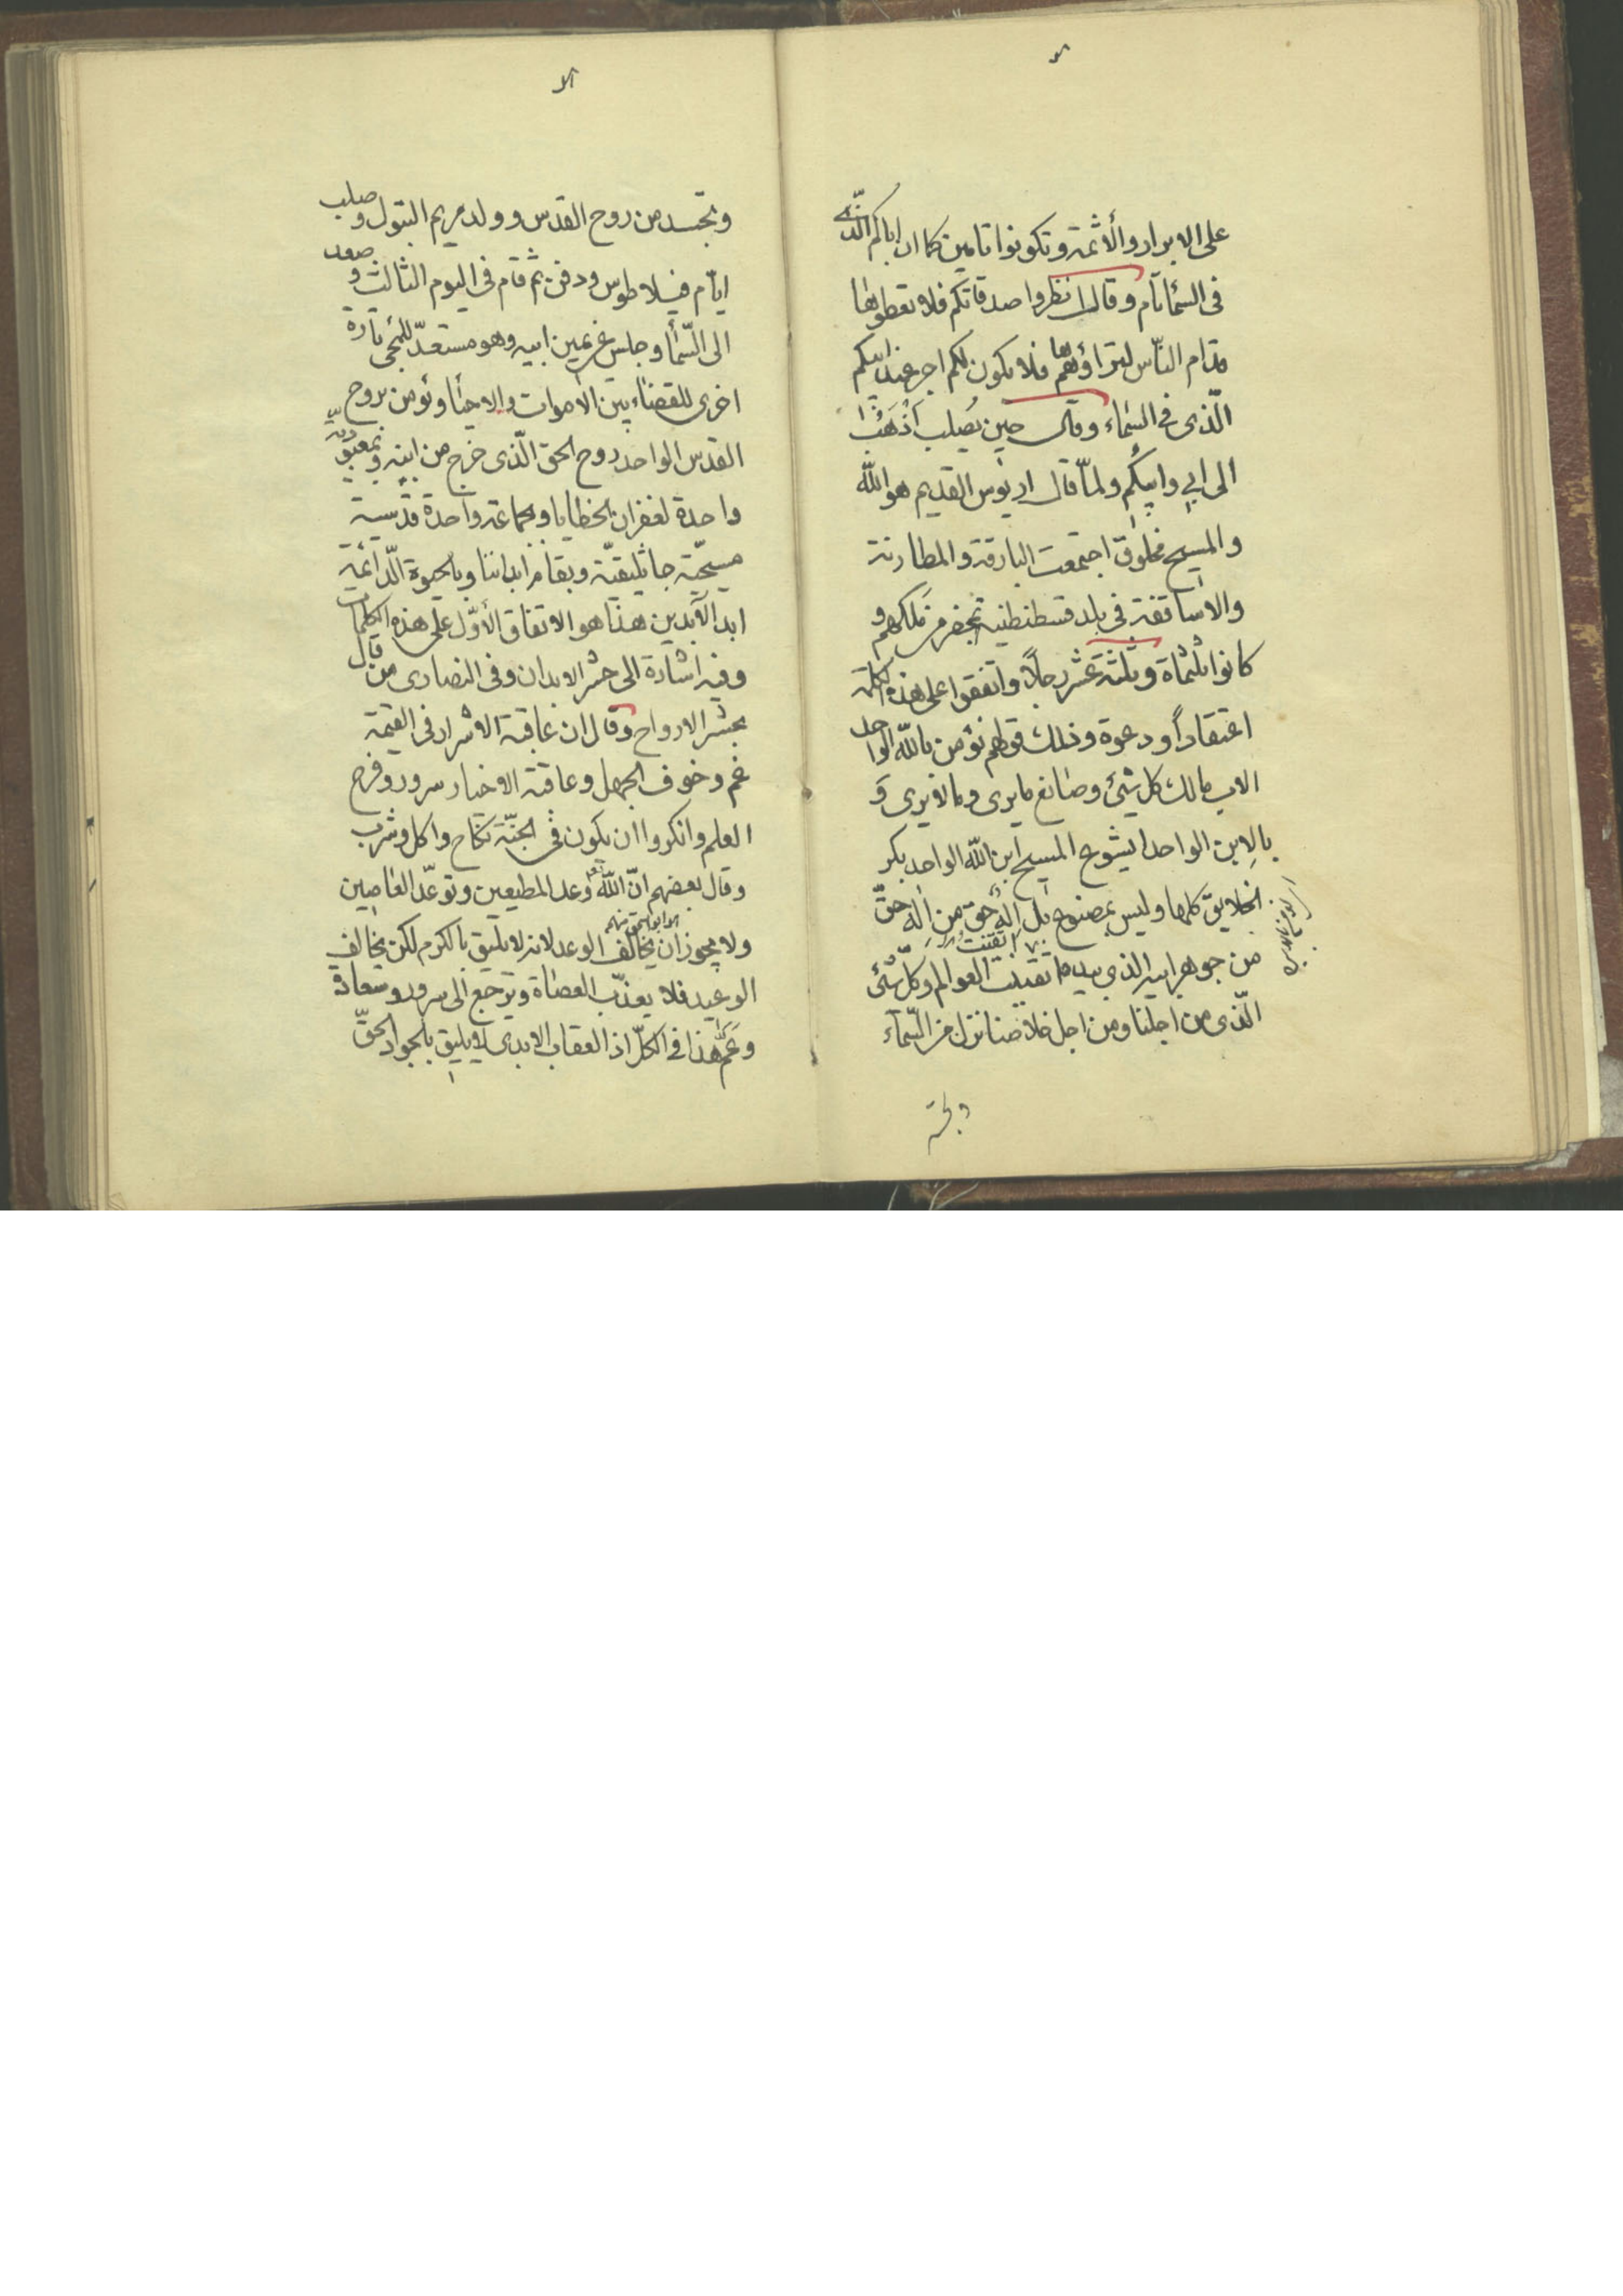 على الابرار والأثمة وتكونوا تامين كما ان اباكم الذي
فى السمأ تام وقال انظروا صدقاتكم فلا تعطوها
قدام الناس لتراؤهم فلا يكون لكم اجر عند ابيكم
الّذى فى السماء وقال حين يصلب أذهب
الى ابي وابيكم ولمّا قال اريوس القديم هو الله
والمسيح مخلوق اجتمعت البارقة والمطارنة
والاساقفة فى بلد قسطنطنية بمحضر من ملكهم و
كانوا ثلثماة وثلثة عشر رجلاً واتفقوا على هذه الكلمة
اعتقاداً ودعوة وذلك قولهم نؤمن بالله الواحد
الاب مالك كل شئ وصانع ما يرى وما لا يرى وَ
بالاِبن الواحد ايشوع المسيح ابن الله الواحد بكر
الخلايق كلها وليس بمصنوع بل اله حق من اله حقّ
من جوهر ابيه الذى بيده اتقنت العوالم وكلّ شئ
الّذى من اجلنا ومن اجل خلاصنا نزل من السّمآء
وتجسد
وتجسد من روح القدس وولد مريم البتول وصلب
ايّام فيلاطوس ودفن ثم قام فى اليوم الثالث وصعد
الى السّمأ وجلس عن يمين ابيه وهو مستعدّ للمجى تارة
اخرى للقضاء بين الأموات والاحيأ ونؤمن بروح
القدس الواحد روح الحق الّذى خرج من ابيه وبمعمودية
واحدة لغفران الخطايا وبجماعة واحدة قدسية
مسيحيّة جاثليقيّة وبقيام ابداننا وبالحيوة الدّائمة
ابد الآبدين هذا هو الاتفاق الأوّل على هذه الكلمات
وفيه اشارة الى حشر الابدان وفى النصارى من قال
بحشر الارواح وقال ان عاقبة الاشرار فى القيمة
غم وخوف الجهل وعاقبة الاخيار سرور وفرح
العلم وانكروا ان يكون فى الجنّة نكاح واكل وشرب
وقال بعضهم انّ الله تعالى وعد المطيعين وتوعّد العاصين
ولا يجوز ان يخالف الوعد لانه لا يليق بالكرم لكن يخالف
الوعيد فلا يعذّب العصاة ويرجع الى سرور وسعادة
وعمّ هذا فى الكلّ اذ العقاب الابدى لا يليق بالجواد الحقّ